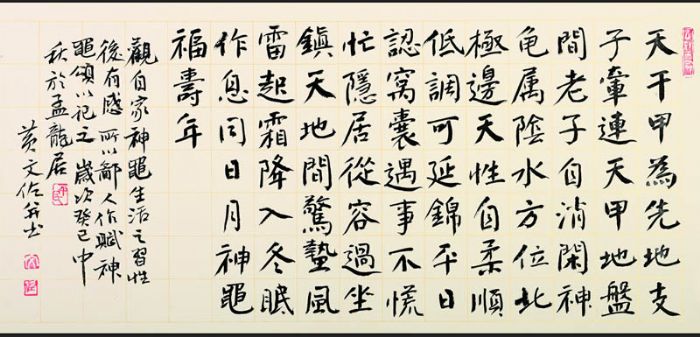 天干甲為先地支
子牽連天甲地盤
間老子自消閑神
亀属陰水方位北
極邊天性自柔順
低調可延錦平日
認窩囊遇事不慌
忙隱居從容過坐
鎮天地間驚蟄風
雷起霜降入冬眠
作息同日月神黽
福壽年
觀自家神黽生活之習性
後有感所以鄙人作賦神
黽頌以记之歲次癸巳中
秋於孟龍居
黄文佐并书